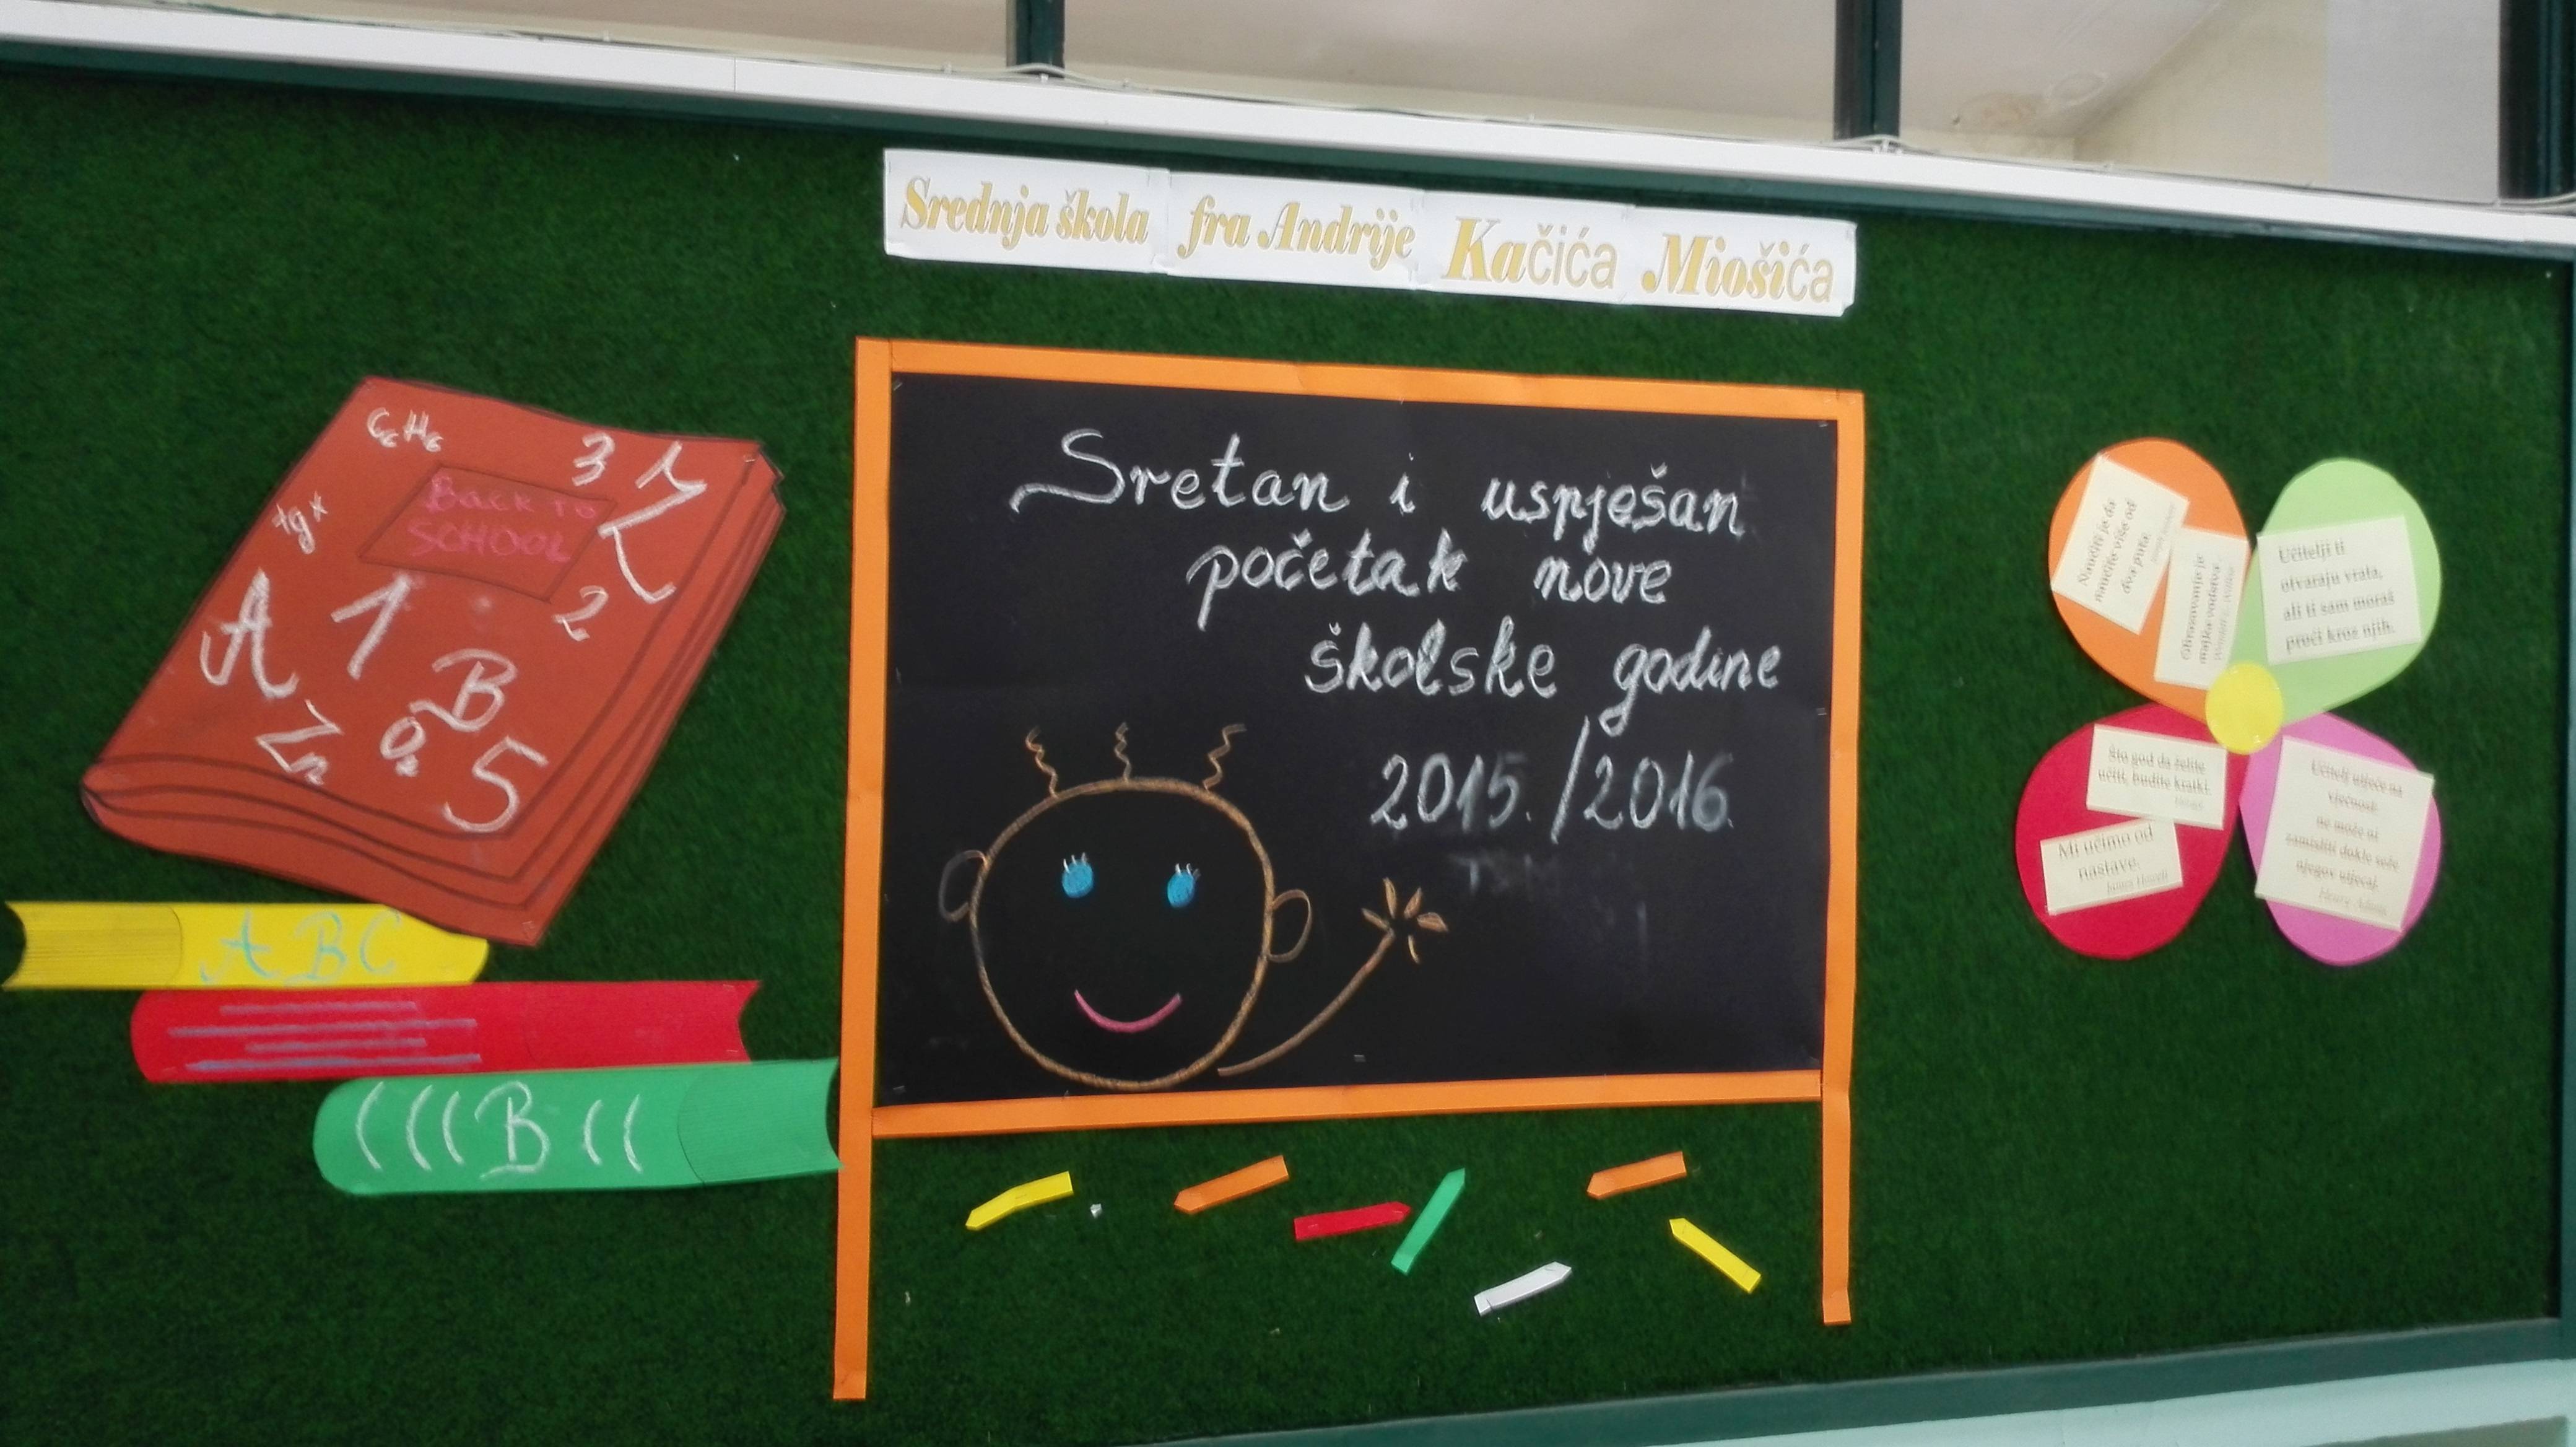 Srednja škola fra Andrije Kačića Miošića
C6H6
3
Back to
SCHOOL
tgx
A 1 2
B
Zn O2 5
ABC
B
Sretan i uspješan
početak nove
školske godine
2015./2016.
Naučiti je da
naučite više od
dva puta
Obrazovanje je
majka vodstva.
Učitelji ti
otvaraju vrata,
ali ti sam moraš
proći kroz njih.
Što god da želite
učiti, budite kratki.
Mi učimo od
nastave.
James Howell
Učitelj utječe na
vječnost:
ne može ni
zamisliti dokle seže
njegov utjecaj.
Henry Adams